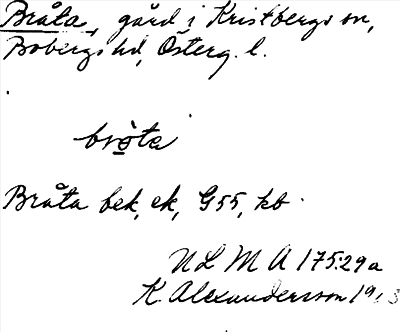 Bråta, gård i Kristbergs sn,
Bobergs hd, Österg. l.
bròta
Bråta bek, ek, G55, kb.
NLMA 175:29a
K Alexandersson